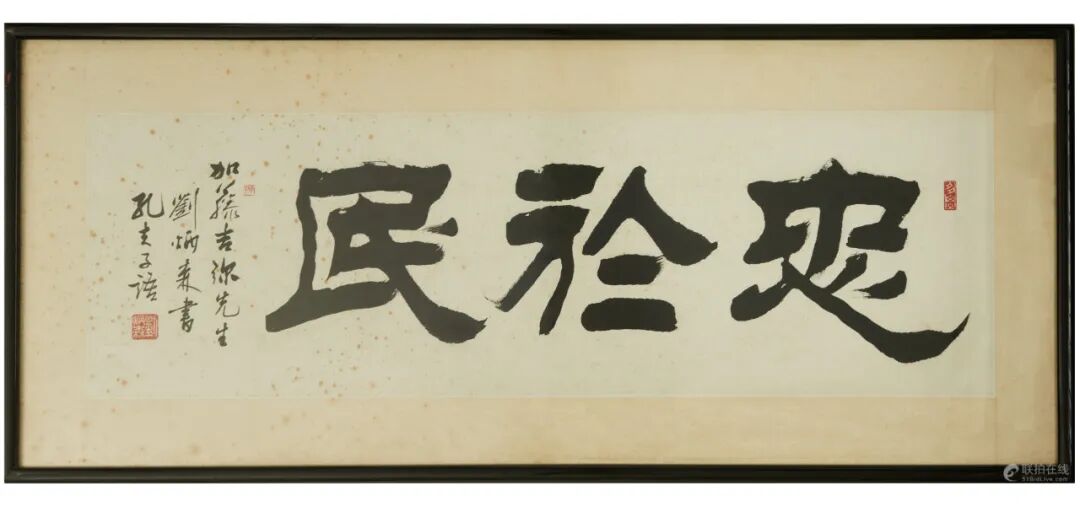 忠於民
加藤吉弥先生
劉炳森書
孔夫子語
联拍在线
51BidLive.com